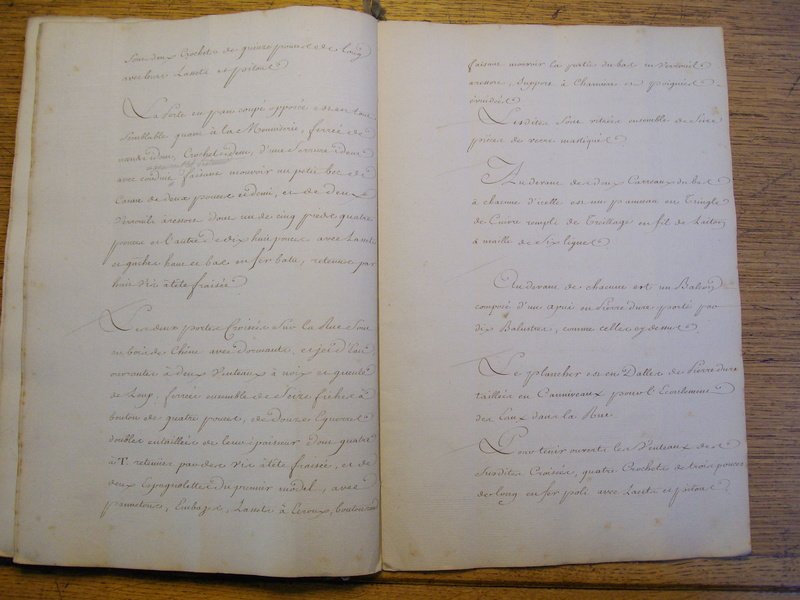 Sont deux Crochets de quinze pouces de long
avec leurs Lassets et pitons
La Porte en pan coupé opposée est en tout
Semblable quant à la Menuiserie, ferrée de
même idem, Crochet idem, d'une Serrure idem
avec faisant mouvoir un petit bec de
Canne de deux pouces et demi, et de deux
Verroüils à ressort dont un de cinq pieds quatre
pouces et l'autre de dix huit pouces avec Lassets
et gaches haut et bas en fer batu, retenus par
huit Vis à tête fraisée
Les deux portes Croisées Sur la Rue Sont
en bois de Chêne avec Dormants, et jet d'Eau,
ouvrantes à deux Venteaux à noix et gueule
de Loup, ferrée ensemble de Seize fiches à
bouton de quatre pouces, de Douze Equerres
doubles entaillées de leur épaisseur dont quatre
à T retenues par des Vis à tête fraisée, et de
deux Espagnolettes du premier model, avec
pannetons, Embazes, Lassets à Ecroux, boutons
faisant mouvoir la partie du bas en Verroüil
à ressort, Support à Charniere et poignées
évuidées
Lesdites Sont vitrées ensemble de Seize
pieces de verre mastiquées
Au devant des deux Carreaux du bas
à chacune d'icelles est un panneau en Tringle
de Cuivre rempli de Treillage en fil de Laiton
à maille de Six lignes
Au devant de chacune est un Balcon
composé d'un apui en Pierre dure porté par
dix Balustres, comme celles cy dessus
Le plancher est en Dalles de Pierre dure
taillées en Canniveaux pour l'Ecoulement
des Eaux dans la Rue
Pour tenir ouverts les Venteaux des
Susdites Croisées, quatre Crochets de trois pouces
de long en fer poli avec Lassets et pitons